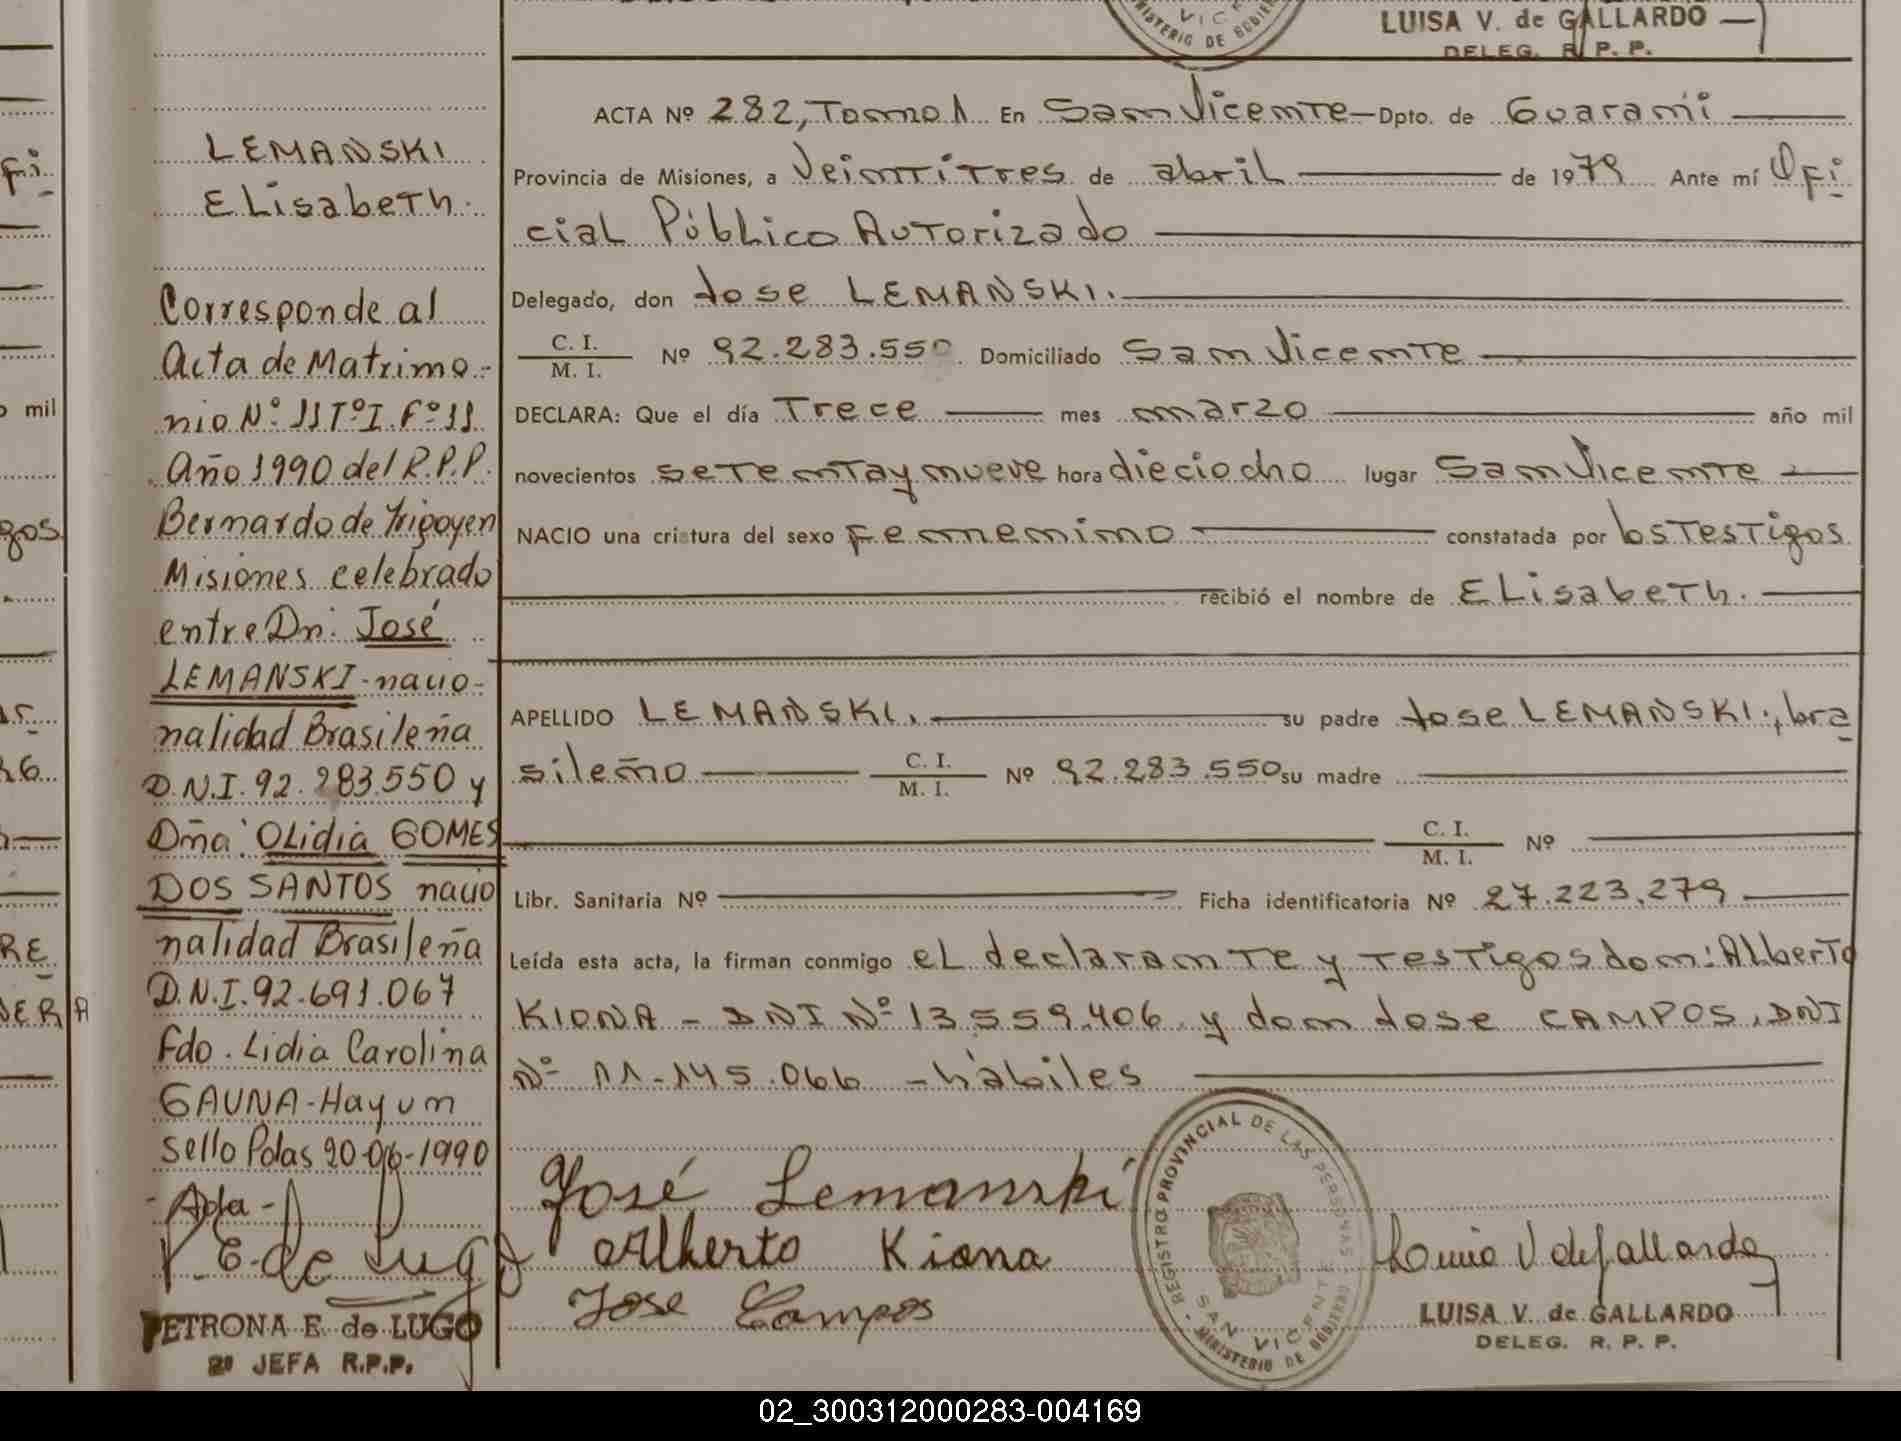 LUISA V. de GALLARDO
DELEG. R. P. P.
LEMANSKI
ELisabeth.
Corresponde al
Acta de Matrimo-
nio Nº 11 Tº I. Fº 11
Año 1990 del R.P.P.
Bernardo de Irigoyen
Misiones celebrado
entre Dn: José
LEMANSKI-nacio-
nalidad Brasileña
D.N.I. 92.283.550 y
Dña: OLidia GOMES
DOS SANTOS nacio
nalidad Brasileña
D.N.I. 92.691.067
Fdo. Lidia Carolina
GAUNA-Hay un
sello Pdas 20-06-1990
P. E. de Lugo
PETRONA E. de LUGO
2ª JEFA R.P.P.
ACTA Nº 282, Tomo 1 En San Vicente - Dpto. de Guaraní
Provincia de Misiones, a Veintitres de abril de 1979 Ante mí Ofi
cial Público Autorizado
Delegado, don Jose LEMANSKI.
C. I.
M. I. Nº 92.283.550 Domiciliado San Vicente
DECLARA: Que el día Trece mes marzo año mil
novecientos setenta y nueve hora dieciocho lugar San Vicente
NACIO una criatura del sexo Femenino constatada por los Testigos
recibió el nombre de ELisabeth.
APELLIDO LEMANSKI. su padre Jose LEMANSKI., bra
sileño C. I.
M. I. Nº 92.283.550 su madre
C. I.
M. I. Nº
Libr. Sanitaria Nº Ficha identificatoria Nº 27.223.279
Leída esta acta, la firman conmigo eL declarante y Testigos don: Alberto
KIONA - DNI Nº 13.559.406 y don Jose CAMPOS, DNI
Nº 11.145.066 - hábiles
José Lemanski
Alberto Kiona
Jose Campos
REGISTRO PROVINCIAL DE LAS PERSONAS
SAN VICENTE
MINISTERIO DE GOBIERNO
Luisa V de Gallardo
LUISA V. de GALLARDO
DELEG. R. P. P.
02_300312000283-004169